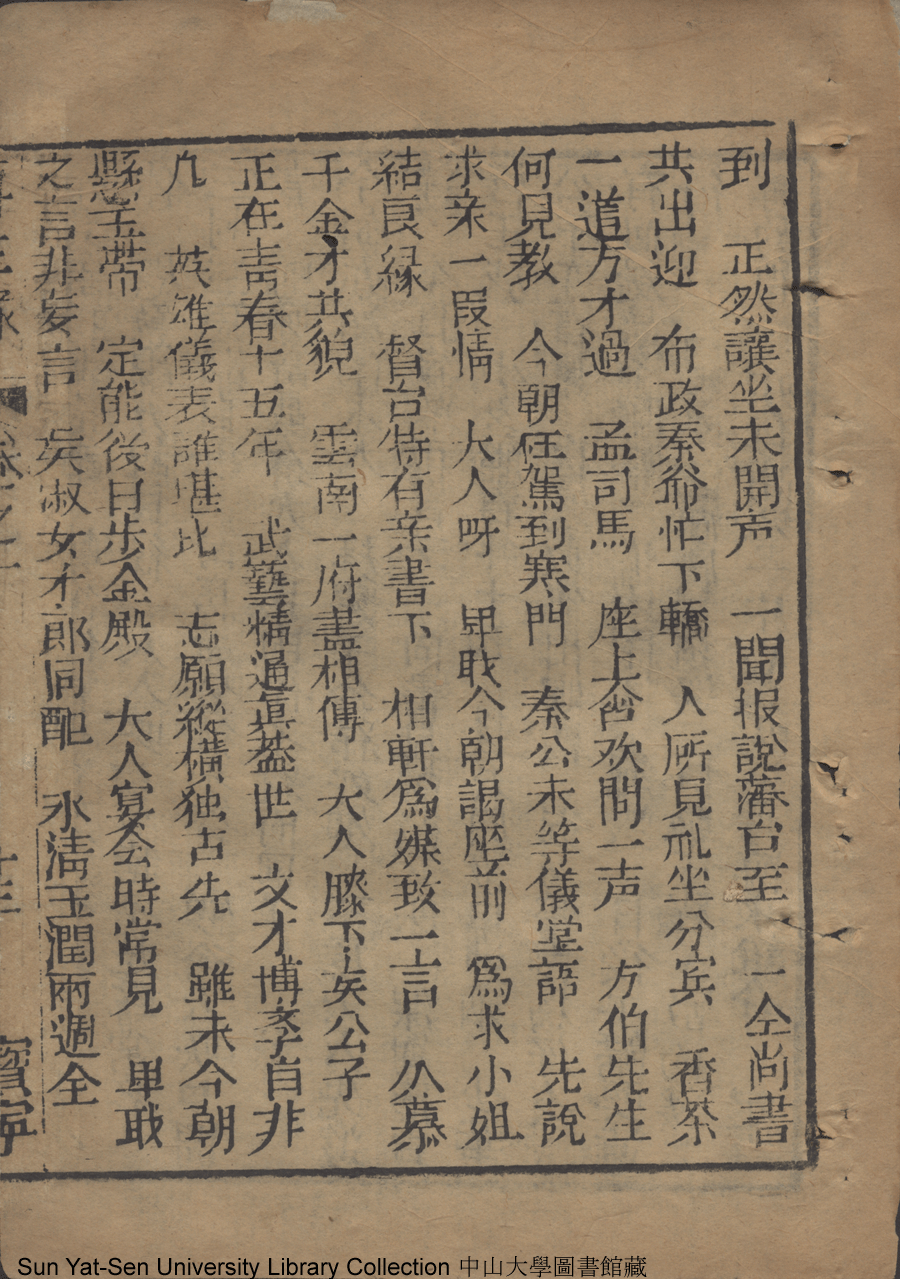 到　正然讓坐未開声　一聞报說藩台至　一仝尚書
共出迎　布政秦爺忙下轎　人所見礼坐分宾　香茶
一道方才過　孟司馬　座上含欢問一声　方伯先生
何見教　今朝枉駕到寒門　秦公未等儀堂語　先說
求亲一叚情　大人呀　卑戝今朝謁座前　爲求小姐
結良縁　督台特有亲書下　相軒爲媒致一言　公慕
千金才共貌　雲南一府盡相傳　大人膝下矣公子
正在青春十五年　武藝精通真葢世　文才博斈自非
凡　英雄儀表誰堪比　志願縱横独占先　雖未今朝
懸玉帶　定能後日步金殿　大人宴会時常見　卑戝
之言非妄言　矣淑女才郎同配　氷清玉潤兩週全
卷之　十三　寳寧
Sun Yat-Sen University Library Collection 中山大學圖書館藏